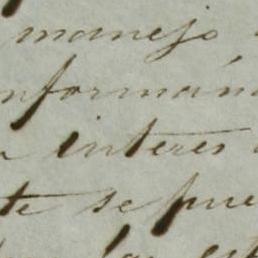 manejo
nformán
interes
te se pue